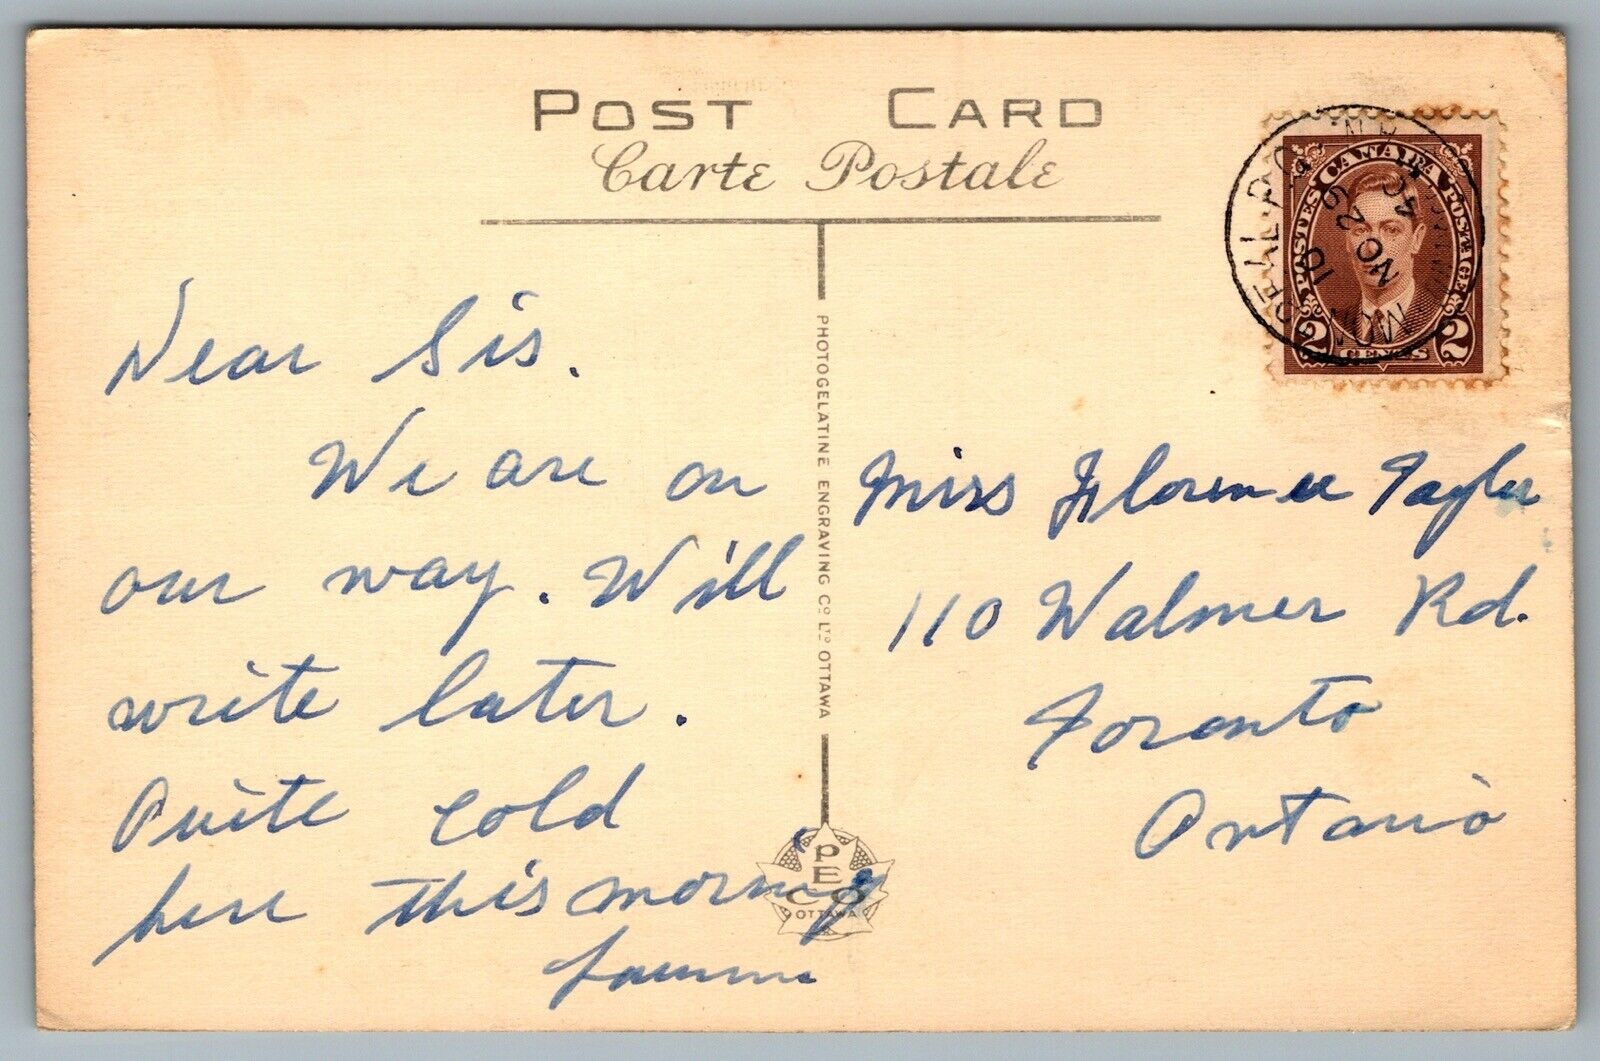 POST CARD
Carte Postale
Dear Sis.
We are on
our way. Will
write later.
Quite cold
here this morning
PHOTOGELATINE ENGRAVING CO LTD OTTAWA
PECO
OTTAWA
CANADA
POSTES POSTAGE
2 CENTS 2
10
NO 29
40
Miss Florence Taylor
110 Walmer Rd.
Toronto
Ontario